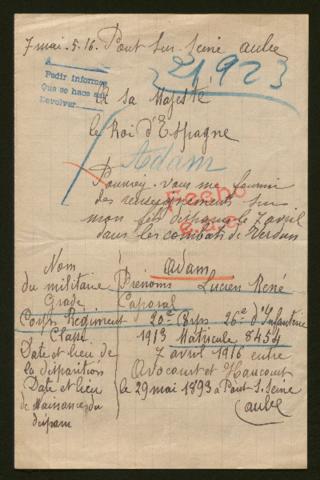 7 mai. 5. 16. Pont sur Seine aube
21.923
A
Pedir informes
Que se hace su
Devolver
A sa Majesté
le Roi d'Espagne
Adam
Pourriez-vous me fournir
des renseignements sur
mon fils disparu le 7 avril
dans les combats de Verdun
Fecho
Nom Adam
du militaire Prenoms Lucien René
Grade Caporal
Corps Regiment 20e Corps 26e d'Infanterie
Classe 1913 Matricule 8454
Date et lieu de 7 avril 1916 entre
la disparition Avocourt et Haucourt
Date et lieu le 29 mai 1893 a Pont S. Seine
de Naissance du (aube
disparu